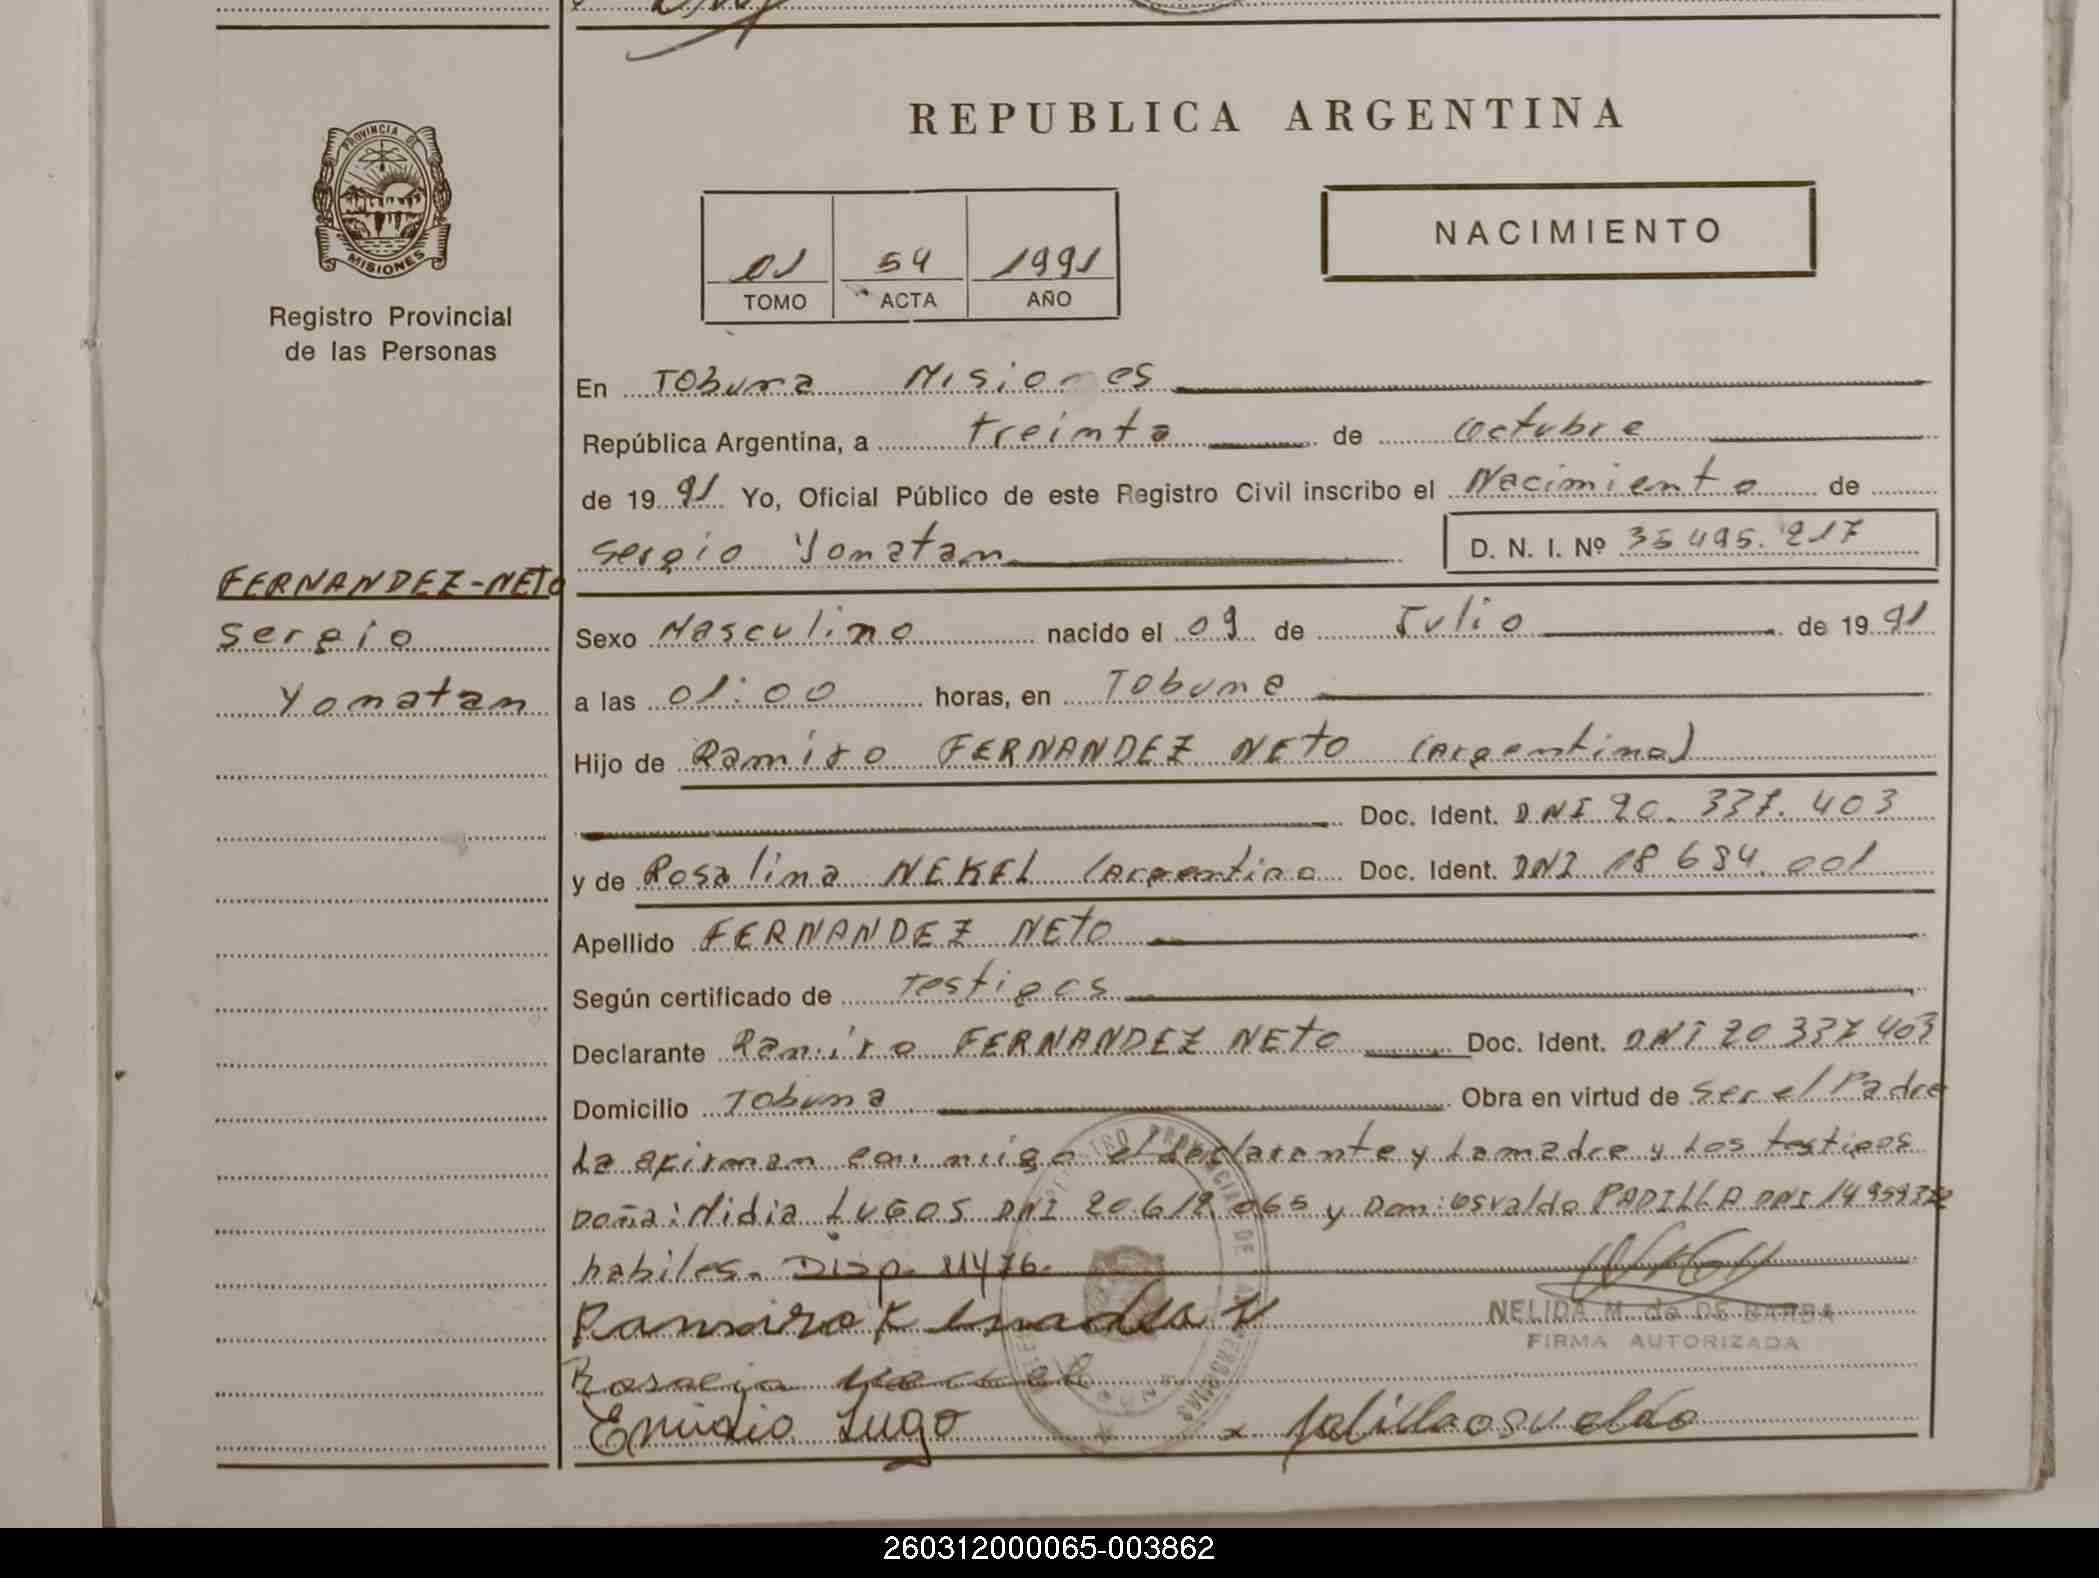 REPUBLICA ARGENTINA
PROVINCIA DE
MISIONES
Registro Provincial
de las Personas
01 54 1991
TOMO ACTA AÑO
NACIMIENTO
En Tobuna Misiones
República Argentina, a treinta de octubre
de 1991 Yo, Oficial Público de este Registro Civil inscribo el Nacimiento de
Sergio Yonatan D. N. I. Nº 35 495. 217
FERNANDEZ-NETO
Sergio
Yonatan
Sexo Masculino nacido el 09 de Julio de 1991
a las 01:00 horas, en Tobuna
Hijo de Ramiro FERNANDEZ NETO (Argentino)
Doc. Ident. DNI 20. 337. 403
y de Rosalina NEKEL (Argentina Doc. Ident. DNI 18 684. 001
Apellido FERNANDEZ NETO
Según certificado de Testigos
Declarante Ramiro FERNANDEZ NETO Doc. Ident. DNI 20 337 403
Domicilio Tobuna Obra en virtud de Ser el Padre
La afirman conmigo el declarante y La madre y Los testigos
Doña: Nidia LUGOS DNI 20 612 065 y Don: Osvaldo PADILLA DNI
habiles. Disp. 114/76.
Ramiro
NELIDA M. de DE BARBA
FIRMA AUTORIZADA
Emidio Lugo
x Padilla osvaldo
260312000065-003862